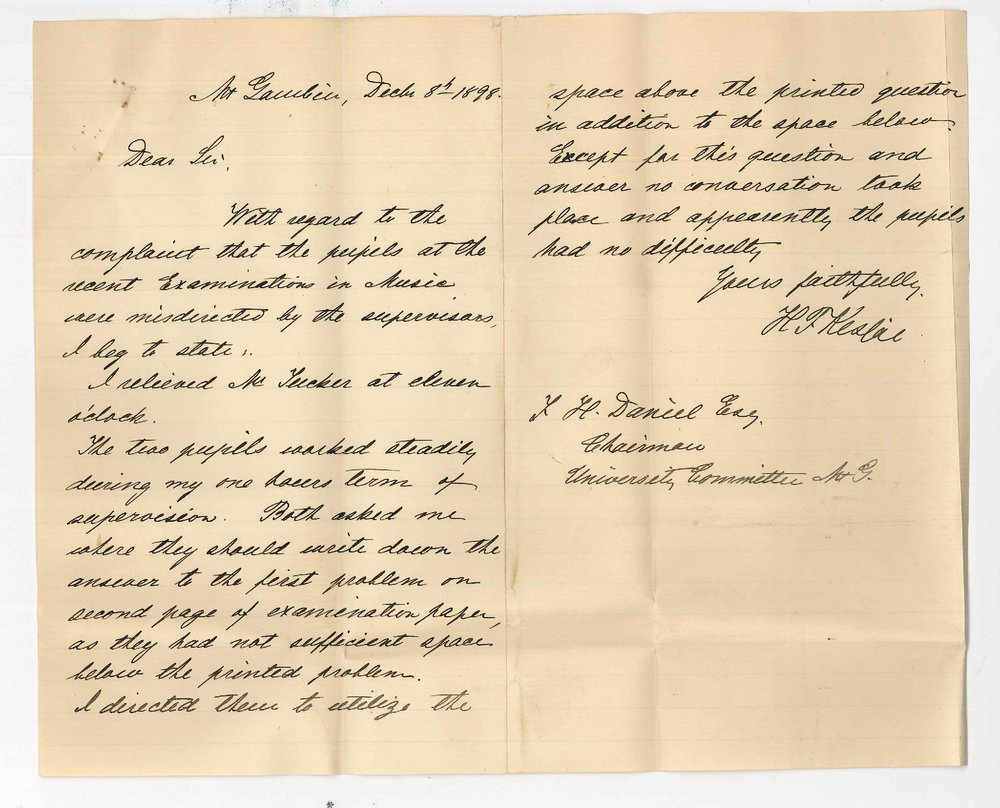 Mt Gambier, Decbr 8th 1898.
Dear Sir,
With regard to the
complaint that the pupils at the
recent Examinations in Music
were misdirected by the supervisors,
I beg to state:.
I relieved Mr Tucker at eleven
o'clock.
The two pupils worked steadily
during my one hours term of
supervision. Both asked me
where they should write down the
answer to the first problem on
second page of examination paper,
as they had not sufficient space
below the printed problem.
I directed them to utilize the
space above the printed question
in addition to the space below.
Except for this question and
answer no conversation took
place and appearently the pupils
had no difficulty
Yours faithfully.
H F
H. Daniel Esq.
Chairman
University Committee Mt G.